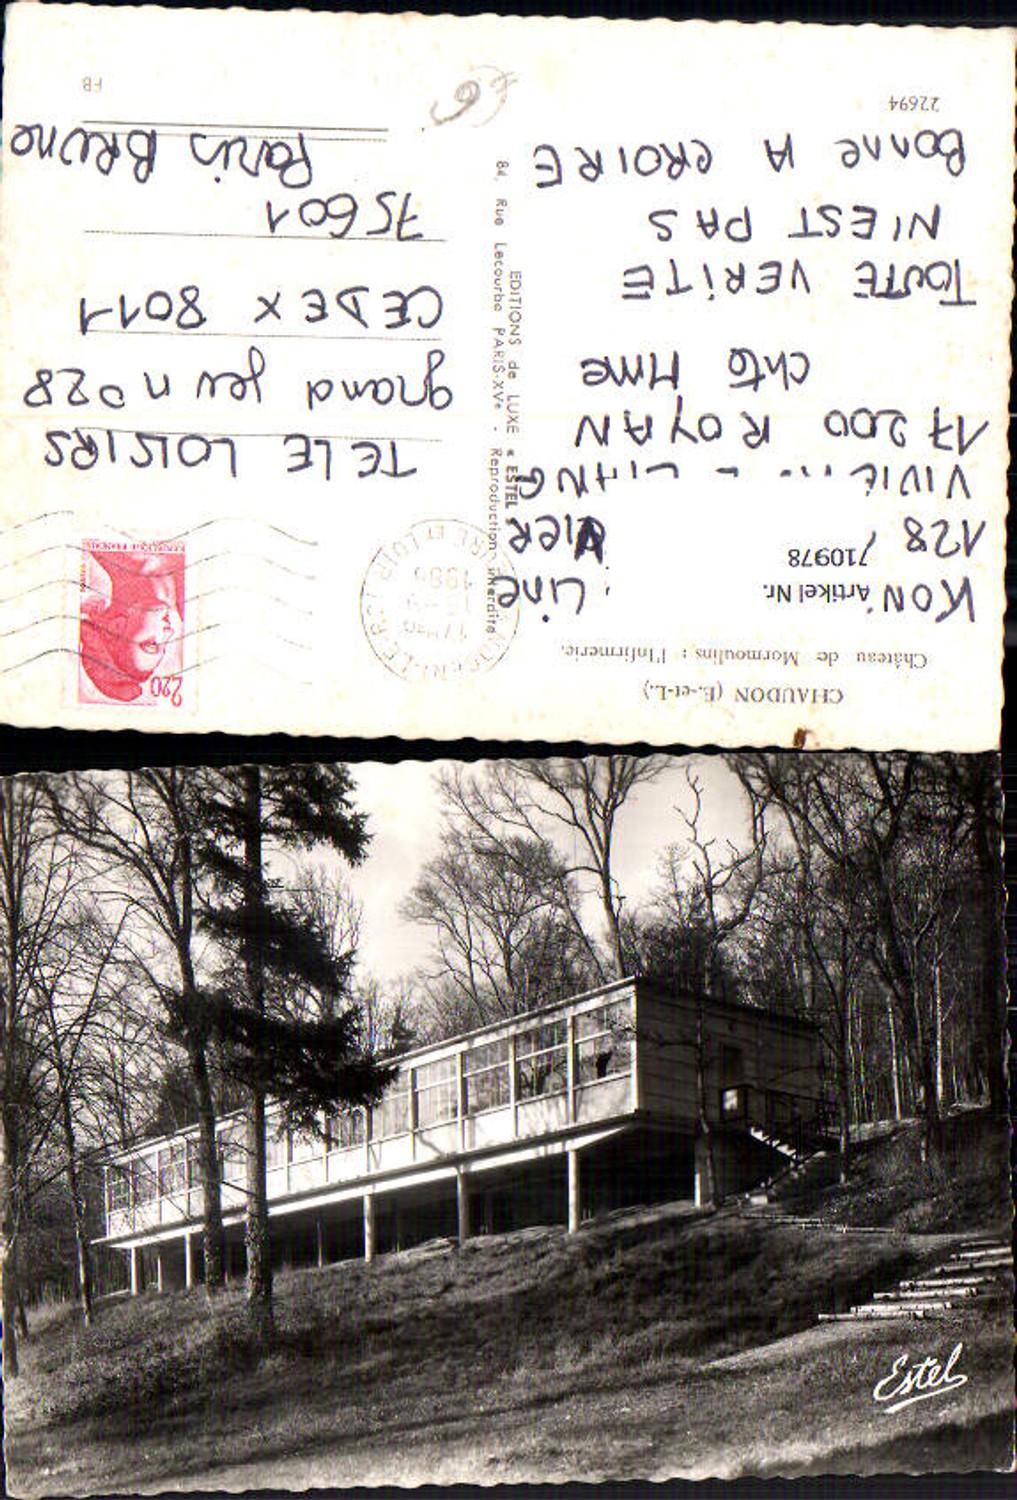 CHAUDON (E.-et-L.)
Château de Mormoulins : l'Infirmerie.
Artikel Nr.
710978
KON
Line
128
VIVIE
17200 ROYAN
chto Mme
TOUTE VERITE
N'EST PAS
BONNE A CROIRE
22694
EDITIONS de LUXE « ESTEL »
84, Rue Lecourbe PARIS-XVe - Reproduction interdite
2,20
REPUBLIQUE FRANCAISE
TELE LOISIRS
grand jeu n°28
CEDEX 8011
75601
Paris BRUNE
FB
6
Estel